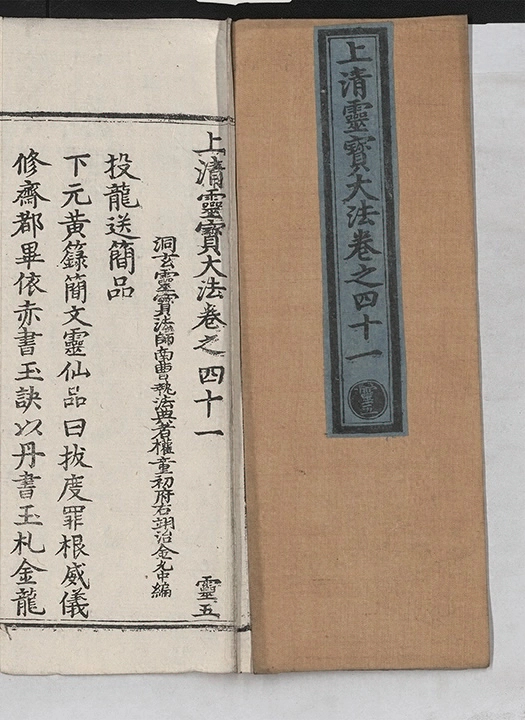 上清靈寶大法卷之四十一
靈五
上清靈寶大法卷之四十一 靈五
洞玄靈寶法師南曹執法典者權童初府右翊治金允中編
投龍送簡品
下元黃籙簡文靈仙品曰拔度罪根威儀
修齋都畢依赤書玉訣以丹書玉札金龍